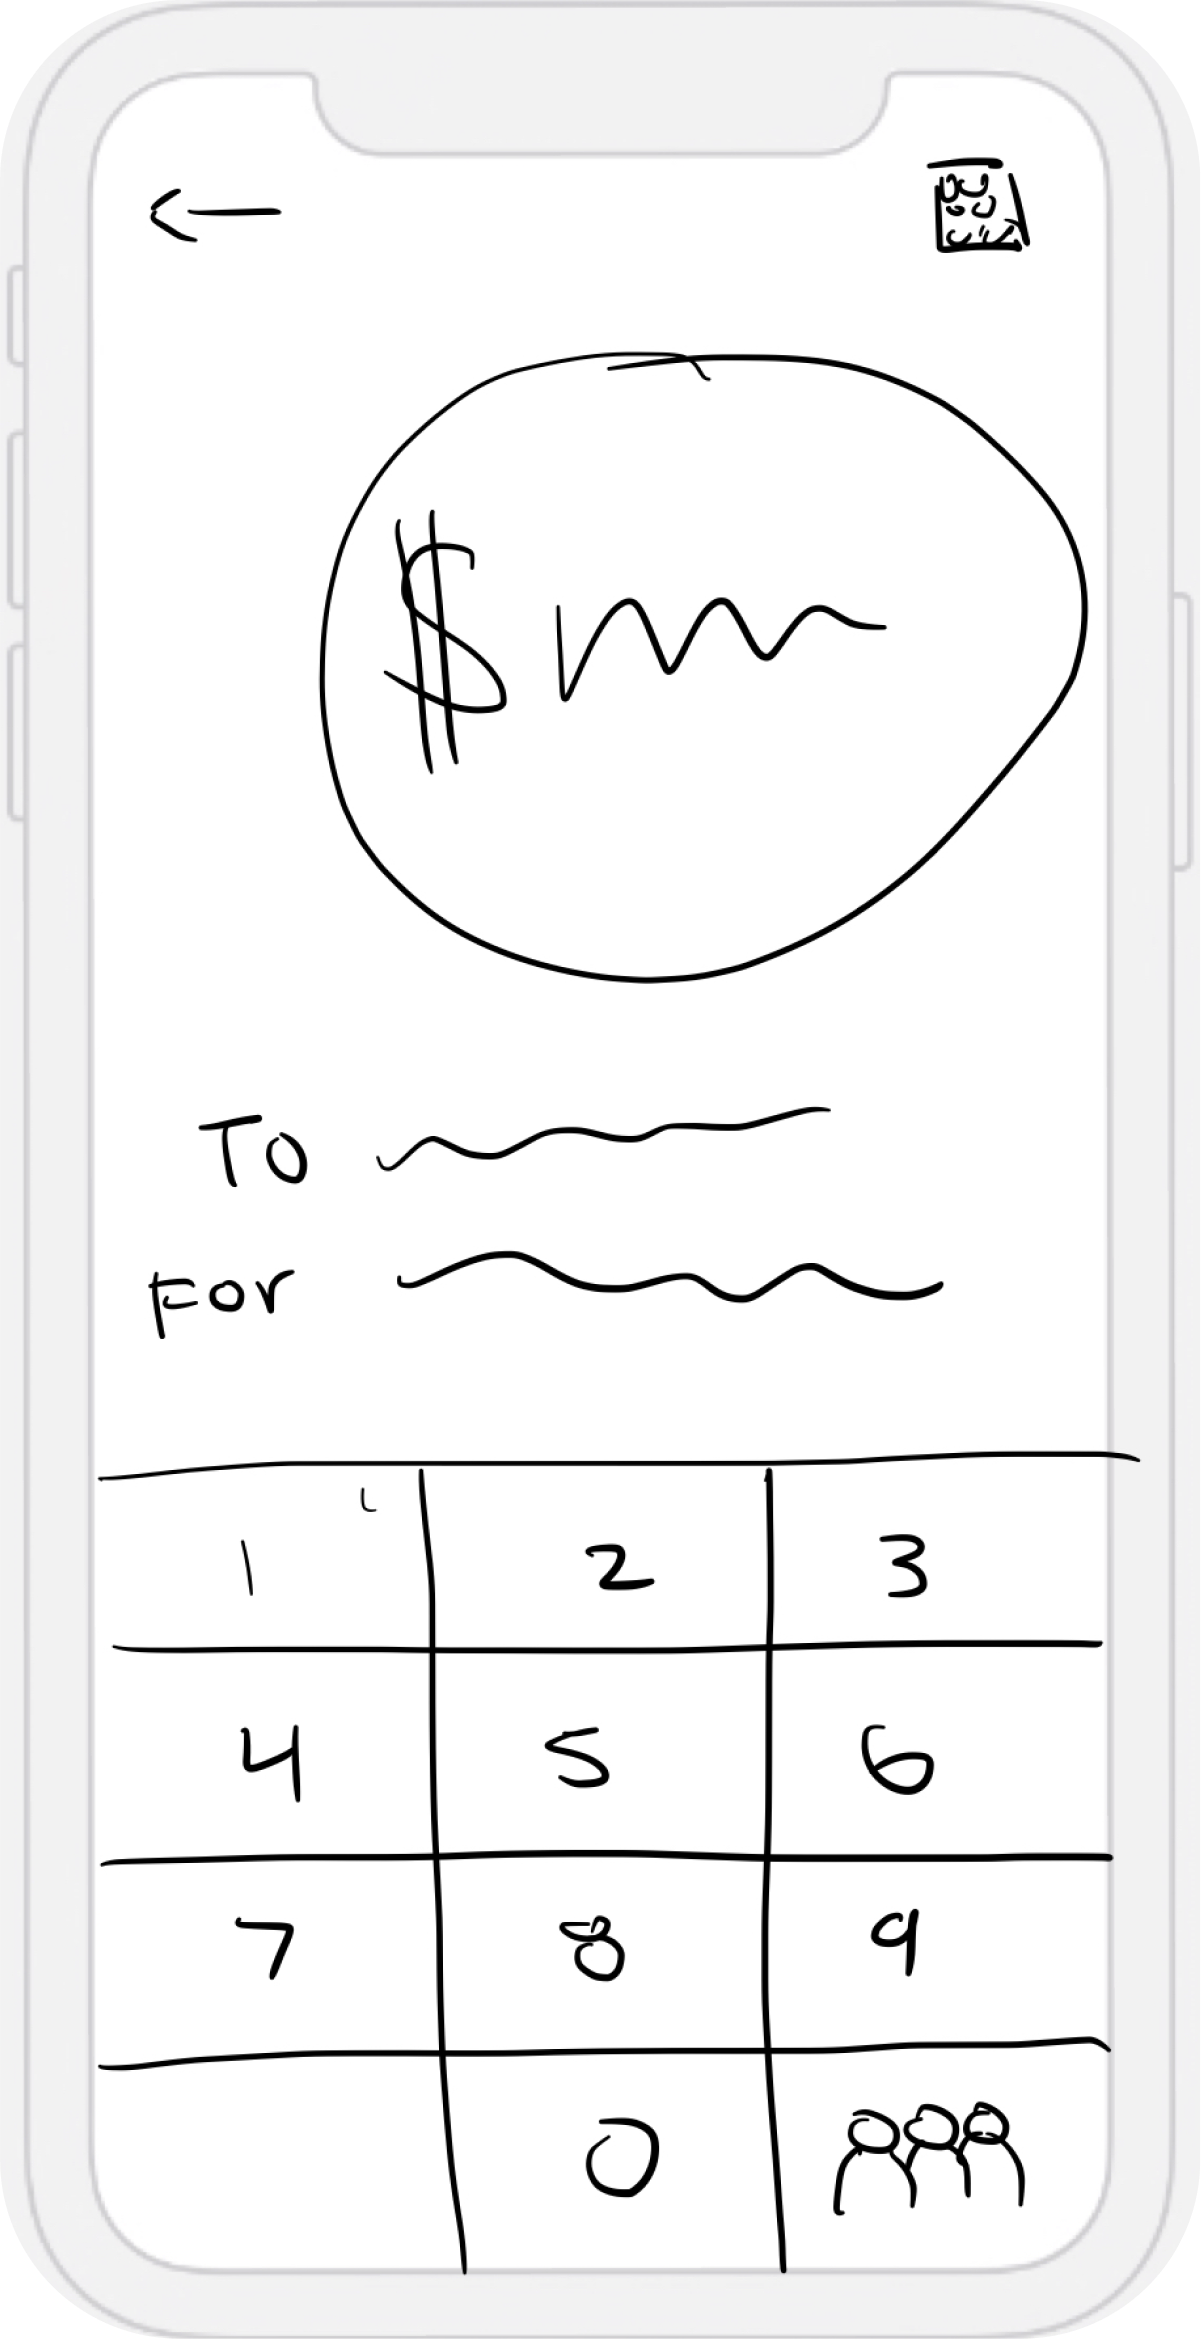 $
To
For
1 2 3
4 5 6
7 8 9
0